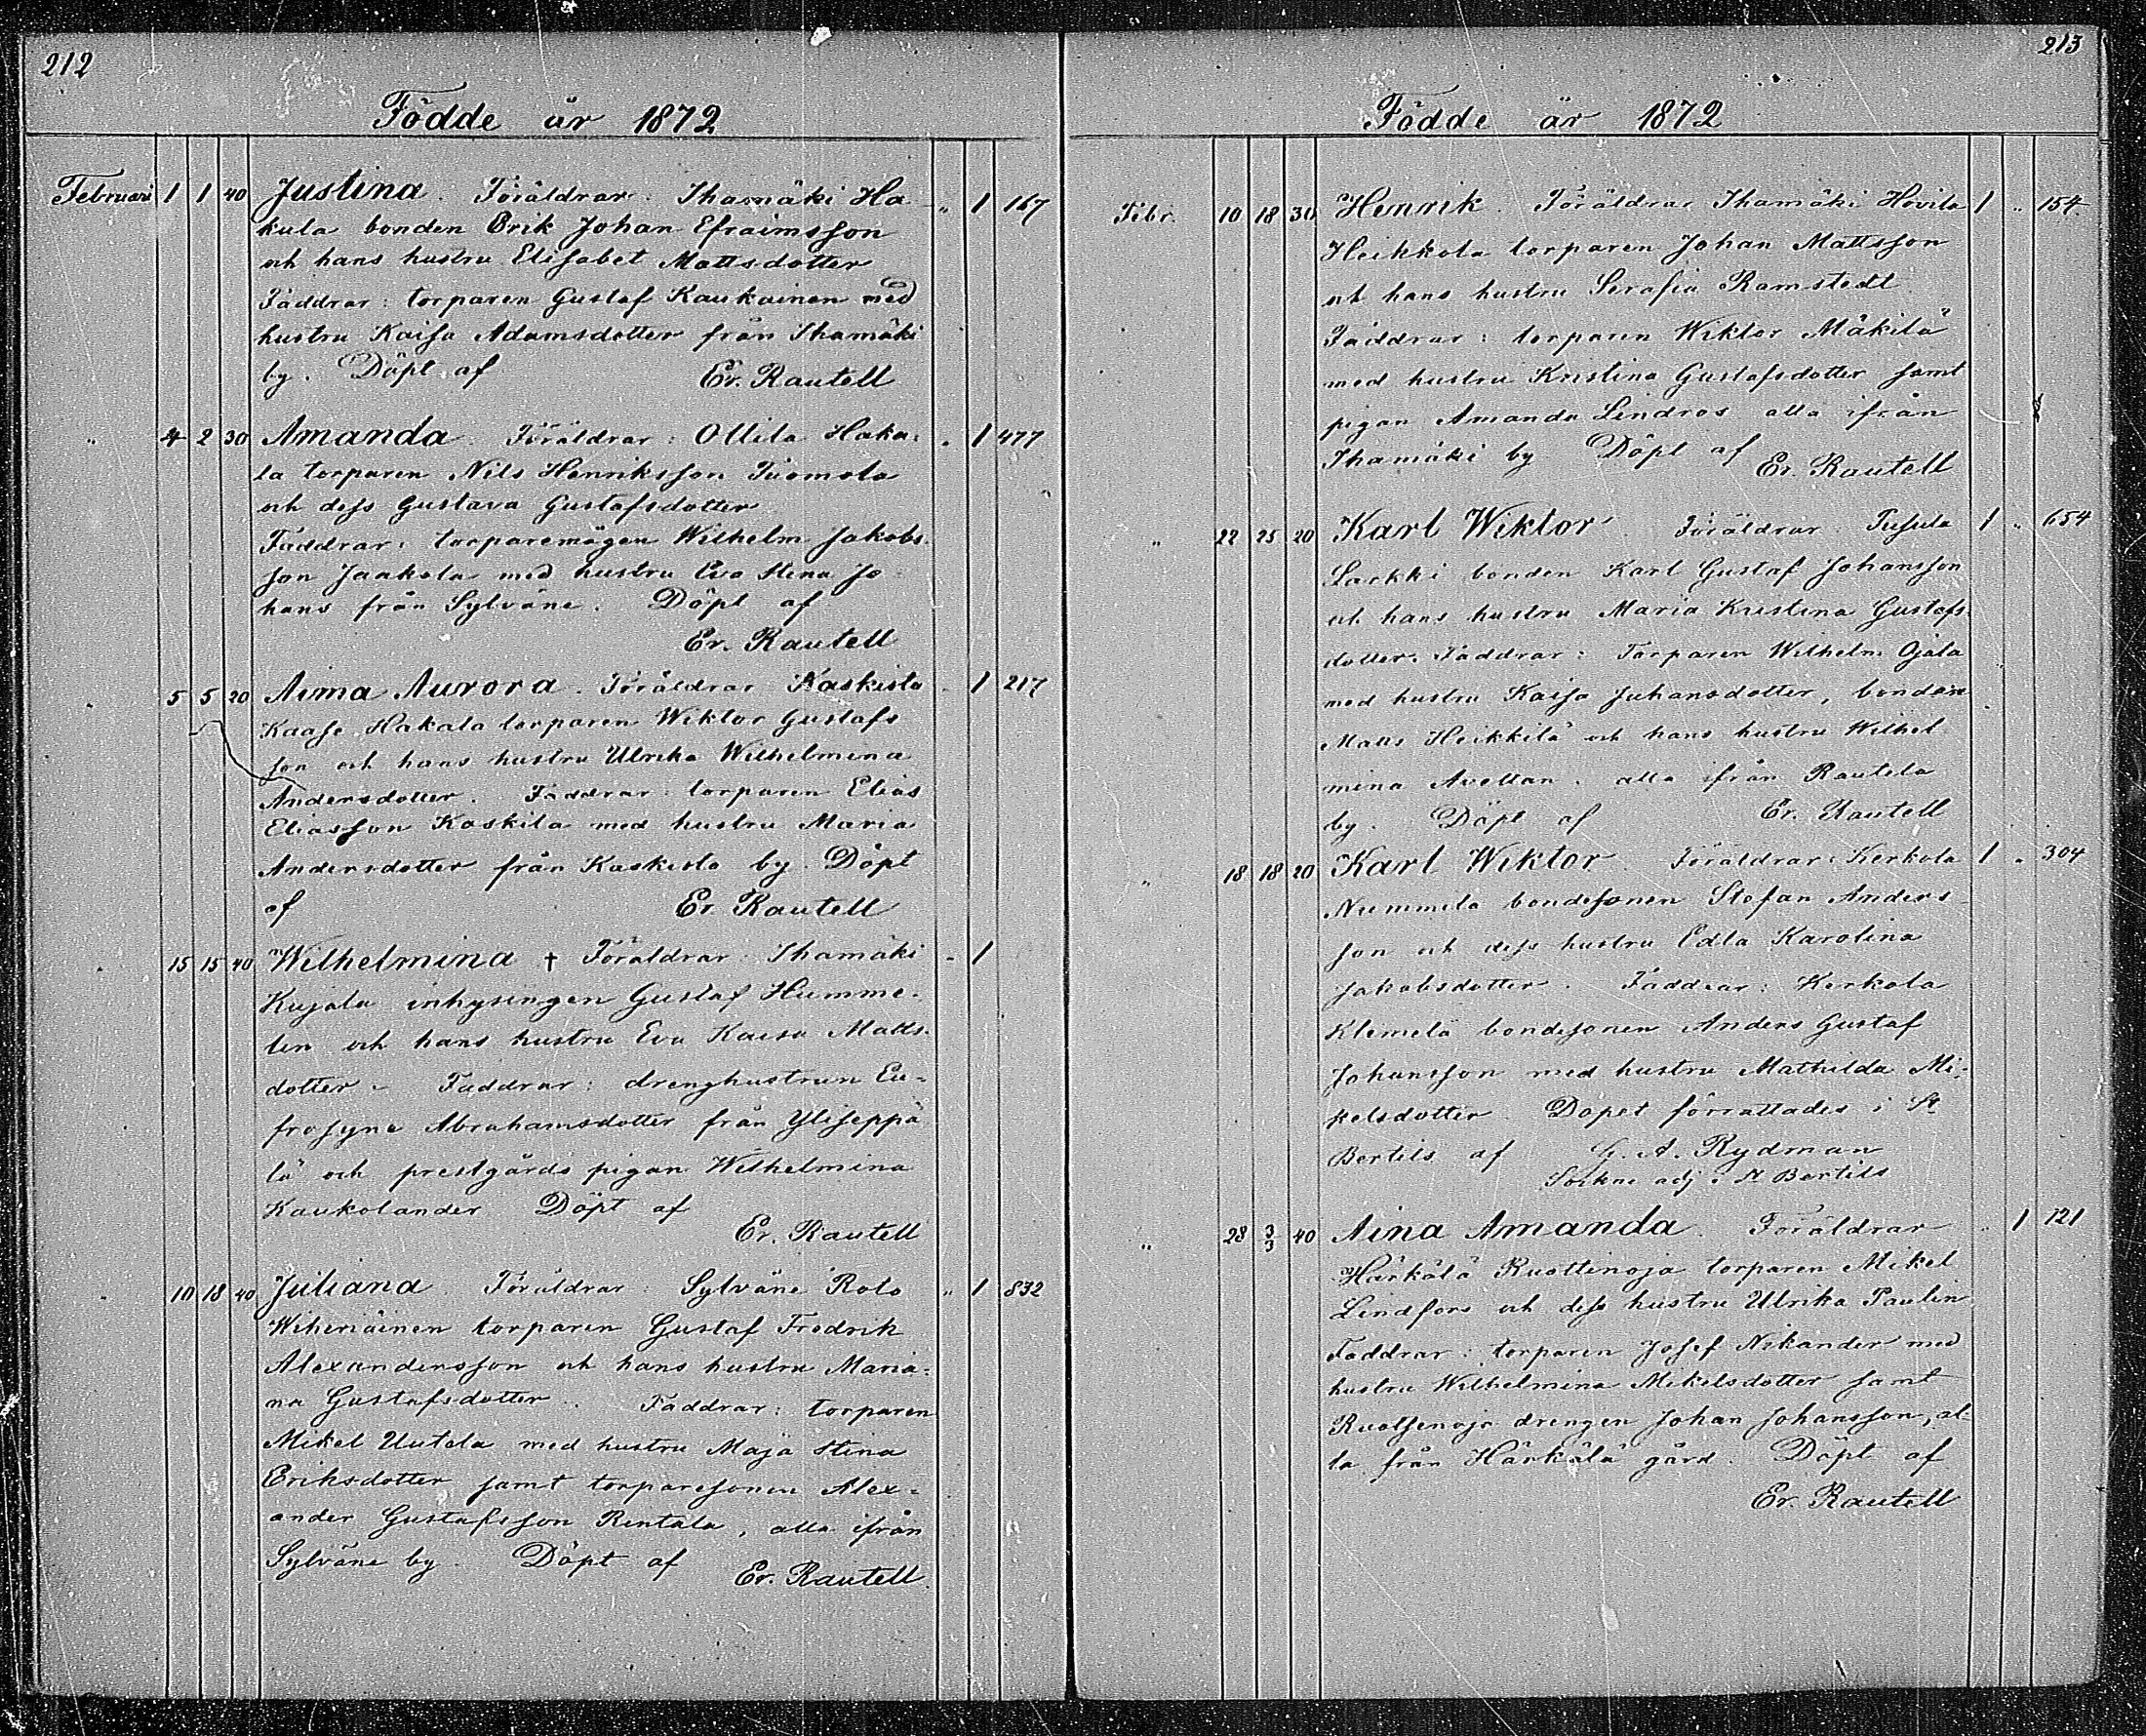 212
Födde år 1872
Februari 1 1 40 Justina. Föräldrar: Ihamäki Ha- „ 1 167
kula bonden Erik Johan Efraimsson
och hans hustru Elisabet Mattsdotter
Fäddrar: torparen Gustaf Kaukainen med
hustru Kaisa Adamsdotter från Ihamäki
by. Döpt af Er. Rautell
„ 4 2 30 Amanda. Föräldrar: Ollila Haka- „ 1 477
la torparen Nils Henriksson Tuomola
och dess Gustava Gustafsdotter
Fäddrar: torparemågen Wilhelm Jakobs-
son Jaakola med hustru Eva Stina Jo
hans från Sylväne. Döpt af
Er. Rautell
„ 5 5 20 Aima Aurora. Föräldrar Kaskisto „ 1 217
Kaase Hakala torparen Wiktor Gustafs
son och hans hustru Ulrika Wilhelmina
Andersdotter. Fäddrar: torparen Elias
Eliasson Koskila med hustru Maria
Andersdotter från Kaskisto by. Döpt
af Er. Rautell
„ 15 15 40 Wilhelmina † Föräldrar: Ihamäki „ 1
Kujala inhysingen Gustaf Humme-
lin och hans hustru Eva Kaisa Matts-
dotter. Faddrar: drenghustrun Eu-
frosyne Abrahamsdotter från Yliseppä
lä och prestgårds pigan Wilhelmina
Kaukolander Döpt af
Er. Rautell
„ 10 18 40 Juliana. Föräldrar: Sylväne Roto „ 1 832
Wiheriäinen torparen Gustaf Fredrik
Alexandersson och hans hustru Maria-
na Gustafsdotter. Fäddrar: torparen
Mikel Uutela med hustru Maja Stina
Eriksdotter samt torparesonen Alex-
ander Gustafsson Rentala, alla ifrån
Sylväne by. Döpt af Er. Rautell.
213
Födde år 1872
Febr. 10 18 30 Henrik. Föräldrar Ihamäki Hovila 1 „ 154
Heikkola torparen Johan Mattsson
och hans hustru Serafia Ramstedt.
Fäddrar: torparen Wiktor Mäkilä
med hustru Kristina Gustafsdotter samt
pigan Amanda Lindros alla ifrån
Ihamäki by Döpt af Er. Rautell
„ 22 25 20 Karl Wiktor. Föräldrar: 1 „ 654
bonden Karl Gustaf Johansson
och hans hustru Maria Kristina Gustafs
dotter. Fäddrar: Torparen Wilhelm Ojala
med hustru Kaisa Juhansdotter, bonden
Matts Heikkilä och hans hustru Wilhel
mina Avellan. alla ifrån Rautela
by. Döpt af Er. Rautell
„ 18 18 20 Karl Wiktor. Föräldrar: Kerkola 1 „ 304
Nummela bondesonen Stefan Anders-
son och dess hustru Edla Karolina
Jakobsdotter. Fäddrar: Kerkola
Klemelä bondesonen Anders Gustaf
Johansson med hustru Mathilda Mi-
kelsdotter. Dopet förrättades i St
Bertils af G. A. Rydman
Sockne adj. i St Bertils
„ 28 3/3 40 Aina Amanda. Föräldrar „ 1 121
Härkälä Ruottinoja torparen Mikel
Lindfors och dess hustru Ulrika Paulin
Faddrar: torparen Josef Nikander med
hustru Wilhelmina Mikelsdotter samt
drengen Johan Johansson, al-
la från Härkälä gård. Döpt af
Er. Rautell